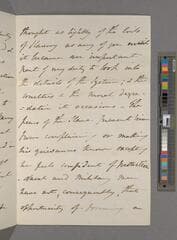 thought as lightly of the evils
of slavery as any of you until
it became an important
part of my duty to look into
the details of the System, & the
miseries & the moral degra-
dation it occasions - The
fears of the Slave prevent him
from complaining or making
his grievances known except
he feels confident of protection
Naval and Military men
have not, consequently, the
opportunity of forming a